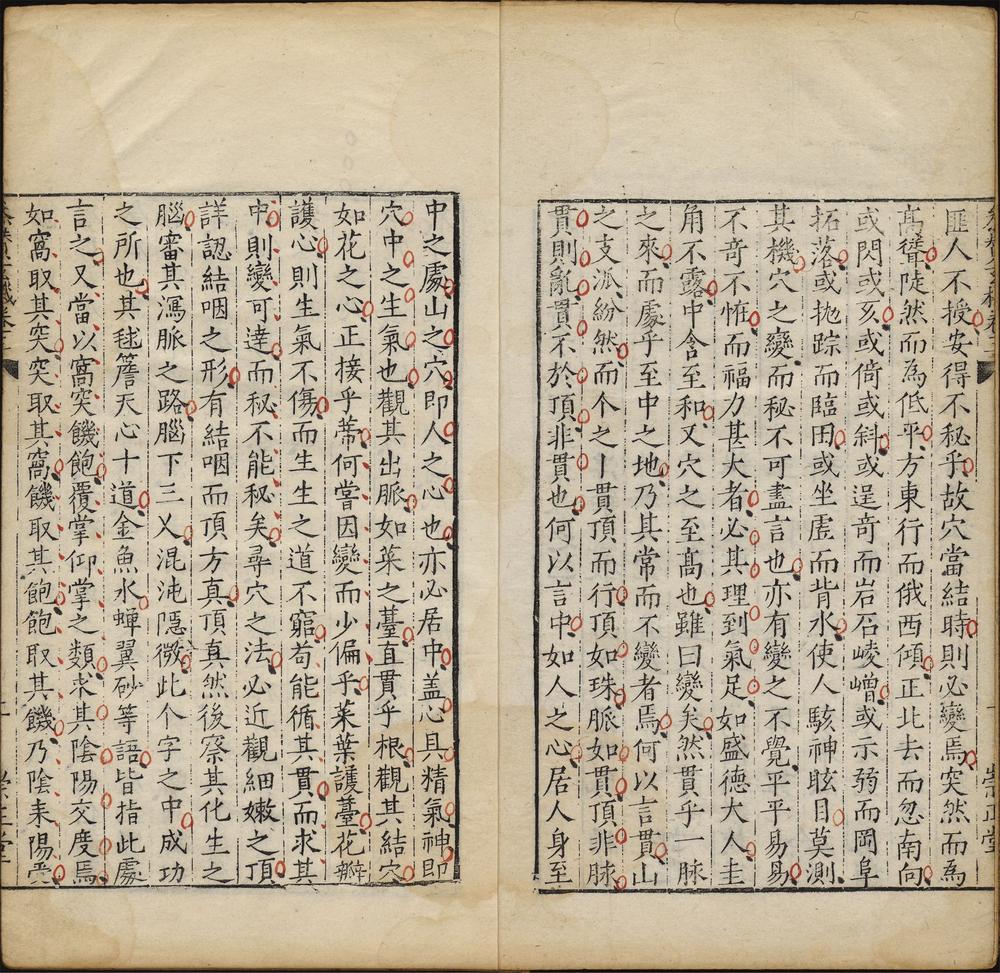 匪人不授安得不秘乎故穴當結時則必變焉突然而為
高聳陡然而為低平方東行而俄西傾正北去而忽南向
或閃或亥或倚或斜或逞奇而岩石崚嶒或示弱而岡阜
拓落或拋踪而臨田或坐虛而背水使人駭神眩目莫測
其機穴之變而秘不可盡言也亦有變之不覺平平易易
不奇不恠而福力甚大者必其理到氣足如盛德大人圭
角不露中含至和又穴之至高也雖曰變矣然貫乎一脉
之來而處乎至中之地乃其常而不變者焉何以言貫山
之支派紛然而个之丨貫頂而行頂如珠脈如貫頂非脉
貫則亂貫不於頂非貫也何以言中如人之心居人身至
崇正堂
中之處山之穴即人之心也亦必居中盖心具精氣神即
穴中之生氣也觀其出脈如菜之薹直貫乎根觀其結穴
如花之心正接乎蒂何嘗因變而少偏乎菜葉護薹花瓣
護心則生氣不傷而生生之道不窮苟能循其貫而求其
中則變可達而秘不能秘矣尋穴之法必近觀細嫩之頂
詳認結咽之形有結咽而頂方真頂真然後察其化生之
腦審其瀉脈之路腦下三乂混沌隱微此个字之中成功
之所也其毬簷天心十道金魚水蟬翼砂等語皆指此處
言之又當以窩突饑飽覆掌仰掌之類求其陰陽交度焉
如窩取其突突取其窩饑取其飽飽取其饑乃陰耒陽受